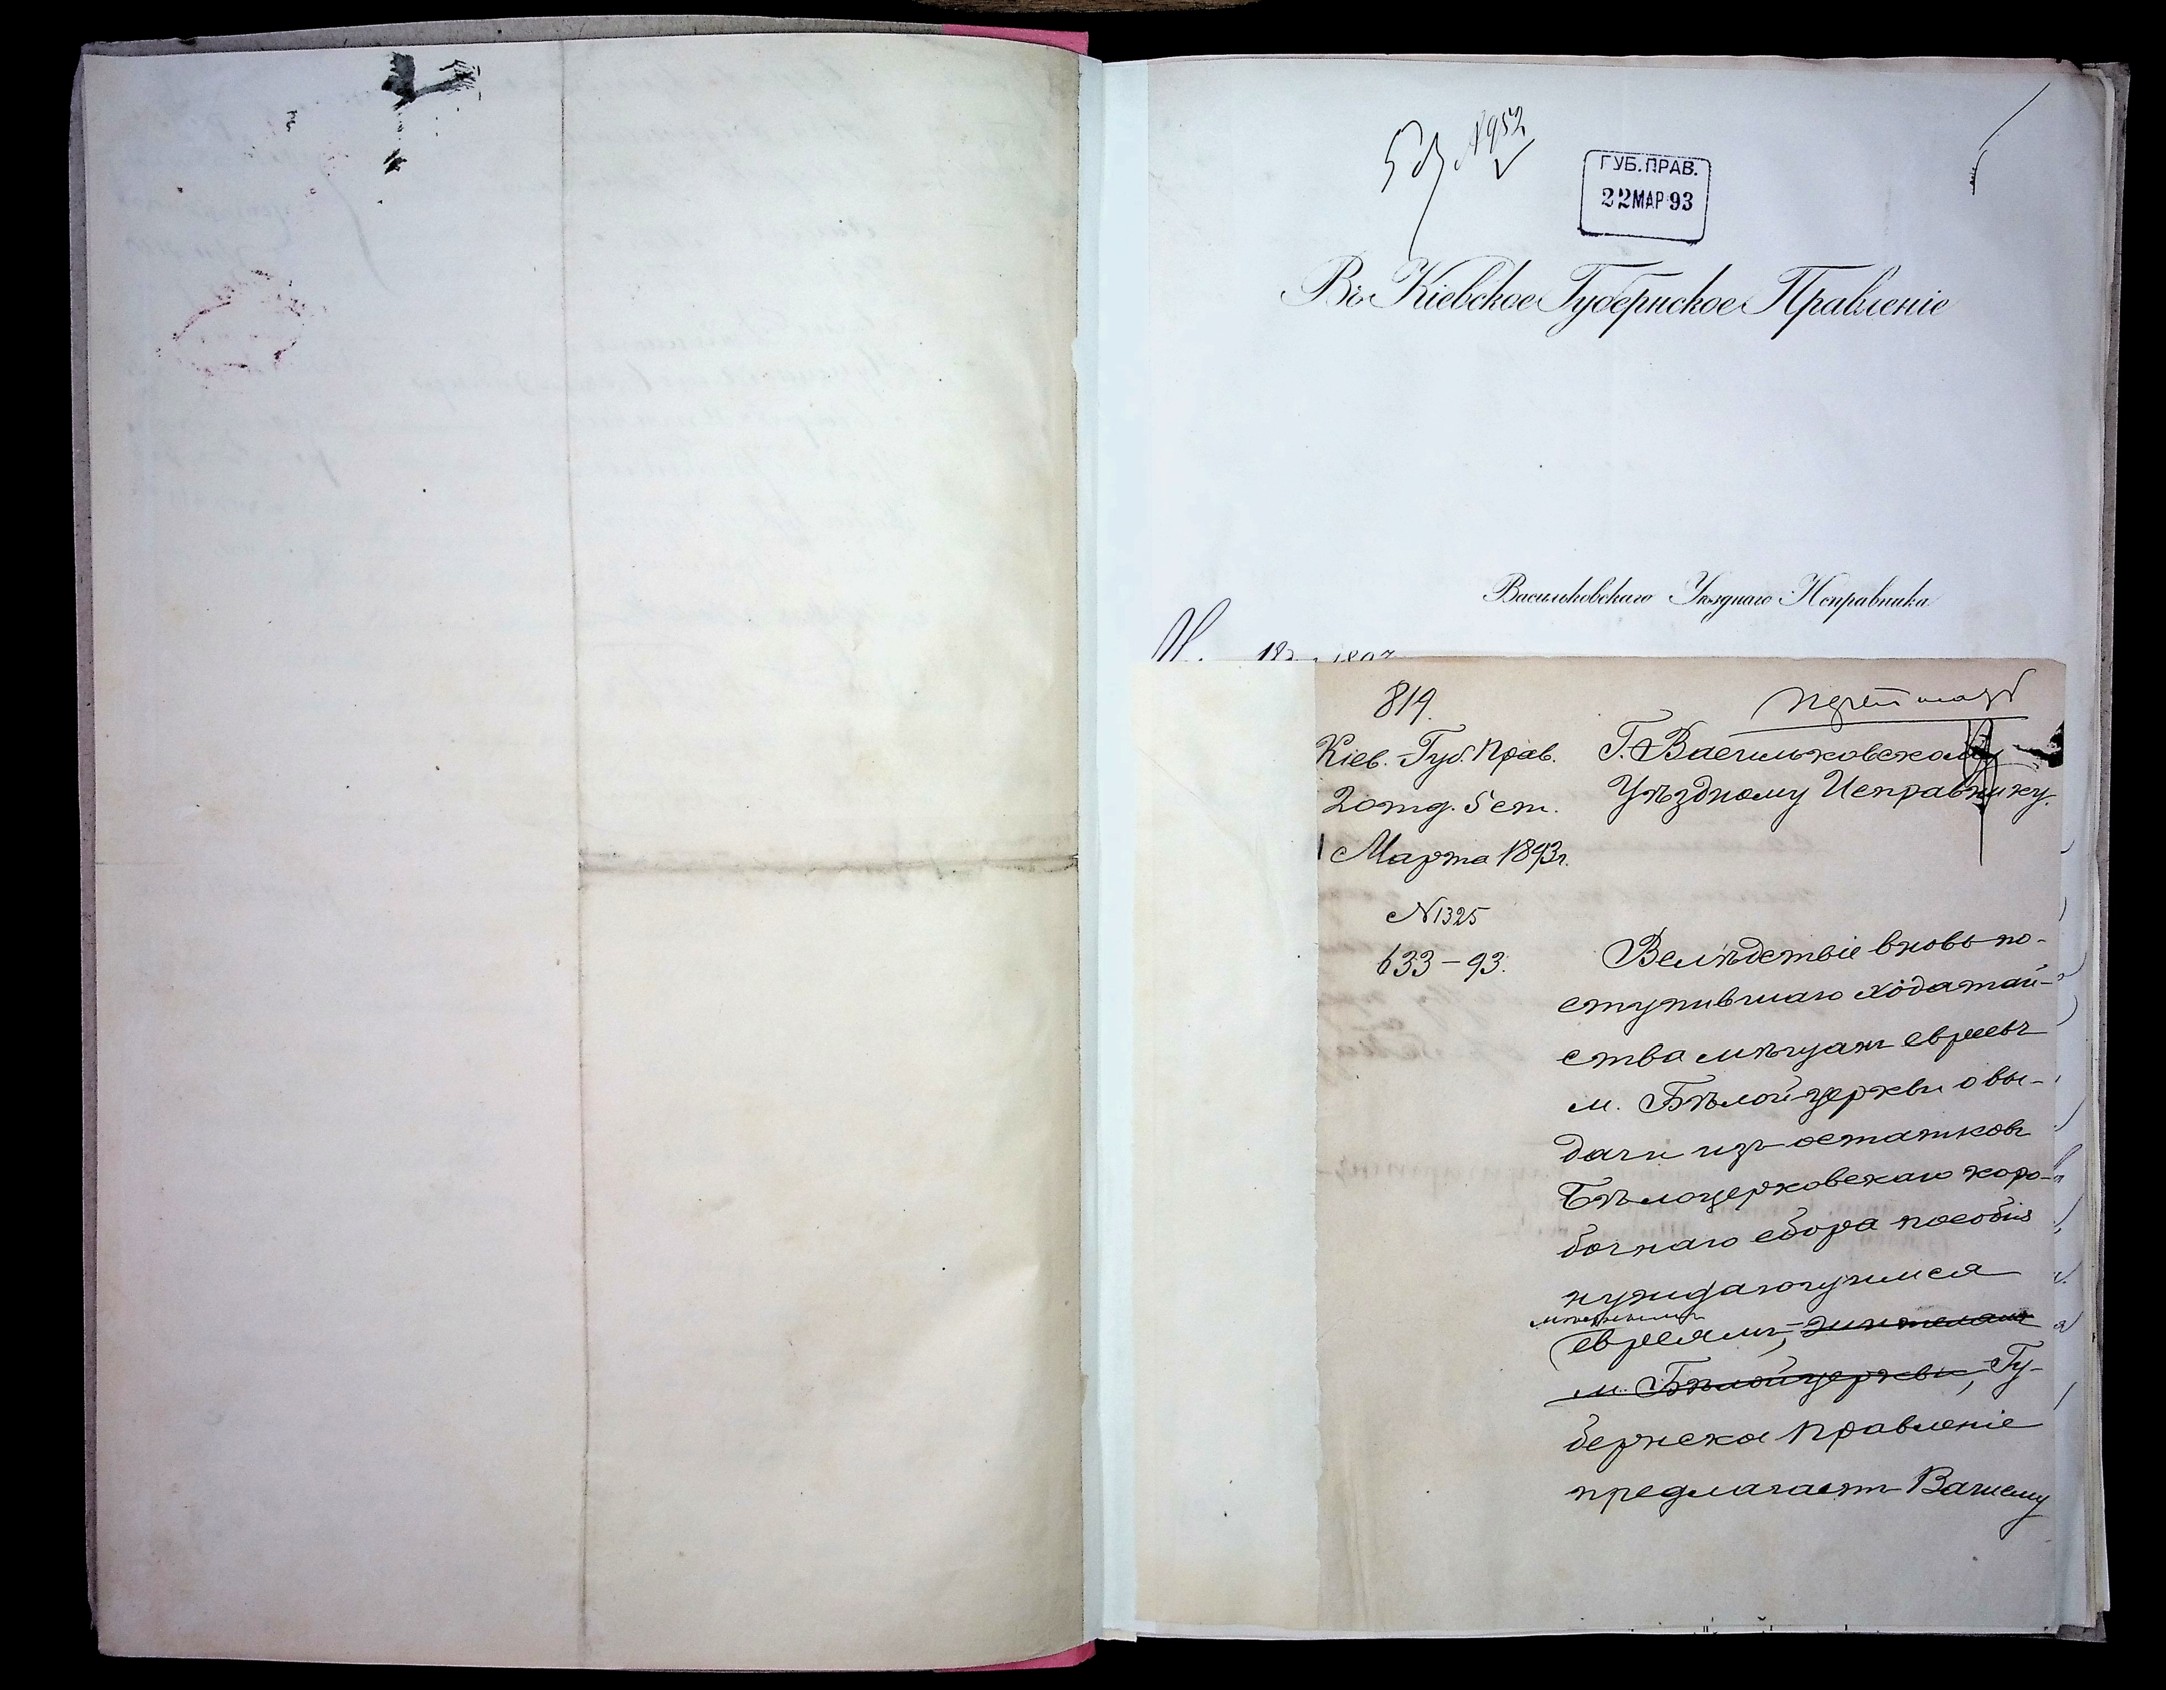 №952
ГУБ. ПРАВ.
22 МАР 93
Въ Кіевское Губернское Правленіе
Васильковскаго Уѣзднаго Исправника
819.
Кіев. Губ. Прав.
2 отд. 5 ст.
Марта 1893 г.
№ 1325
633-93.
Г. Васильковскому
Уѣздному Исправнику.
Вслѣдствіе вновь по-
ступившаго ходатай-
ства мѣщанъ евреевъ
м. Бѣлой-церкви о вы-
дачи изъ остатковъ
Бѣлоцерковскаго коро-
бочнаго сбора пособія
нуждающимся
мѣстнымъ
евреямъ, жителямъ
м. Бѣлой церкви, Гу-
бернское Правленіе
предлагаетъ Вашему